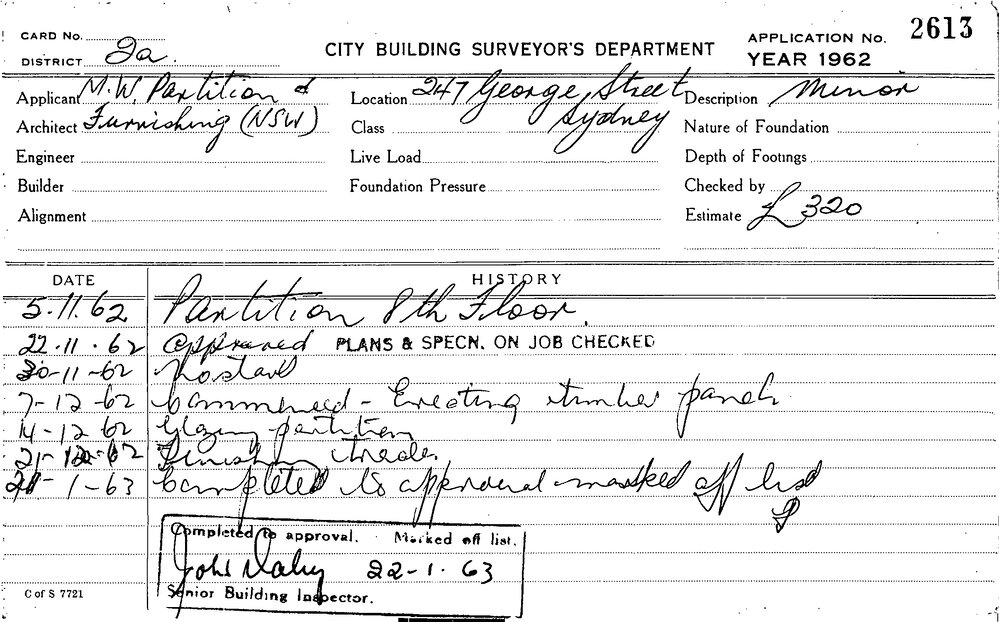 CARD No.
DISTRICT 2a.
CITY BUILDING SURVEYOR'S DEPARTMENT
APPLICATION No. 2613
YEAR 1962
Applicant M.W. Partition &
Architect Furnishing (NSW)
Engineer
Builder
Alignment
Location 247 George Street
Sydney
Class
Live Load
Foundation Pressure
Description Minor
Nature of Foundation
Depth of Footings
Checked by
Estimate £320
DATE HISTORY
5.11.62 Partition 8th Floor.
22.11.62 approved PLANS & SPECN. ON JOB CHECKED
30-11-62
7-12-62 Commenced - Erecting timber panels
14-12-62 Glazing partition
21-12-62 Finishing trades
1-63 Completed to approval marked off list
Completed to approval. Marked off list.
John Daly 22-1-63
Senior Building Inspector.
C of S 7721